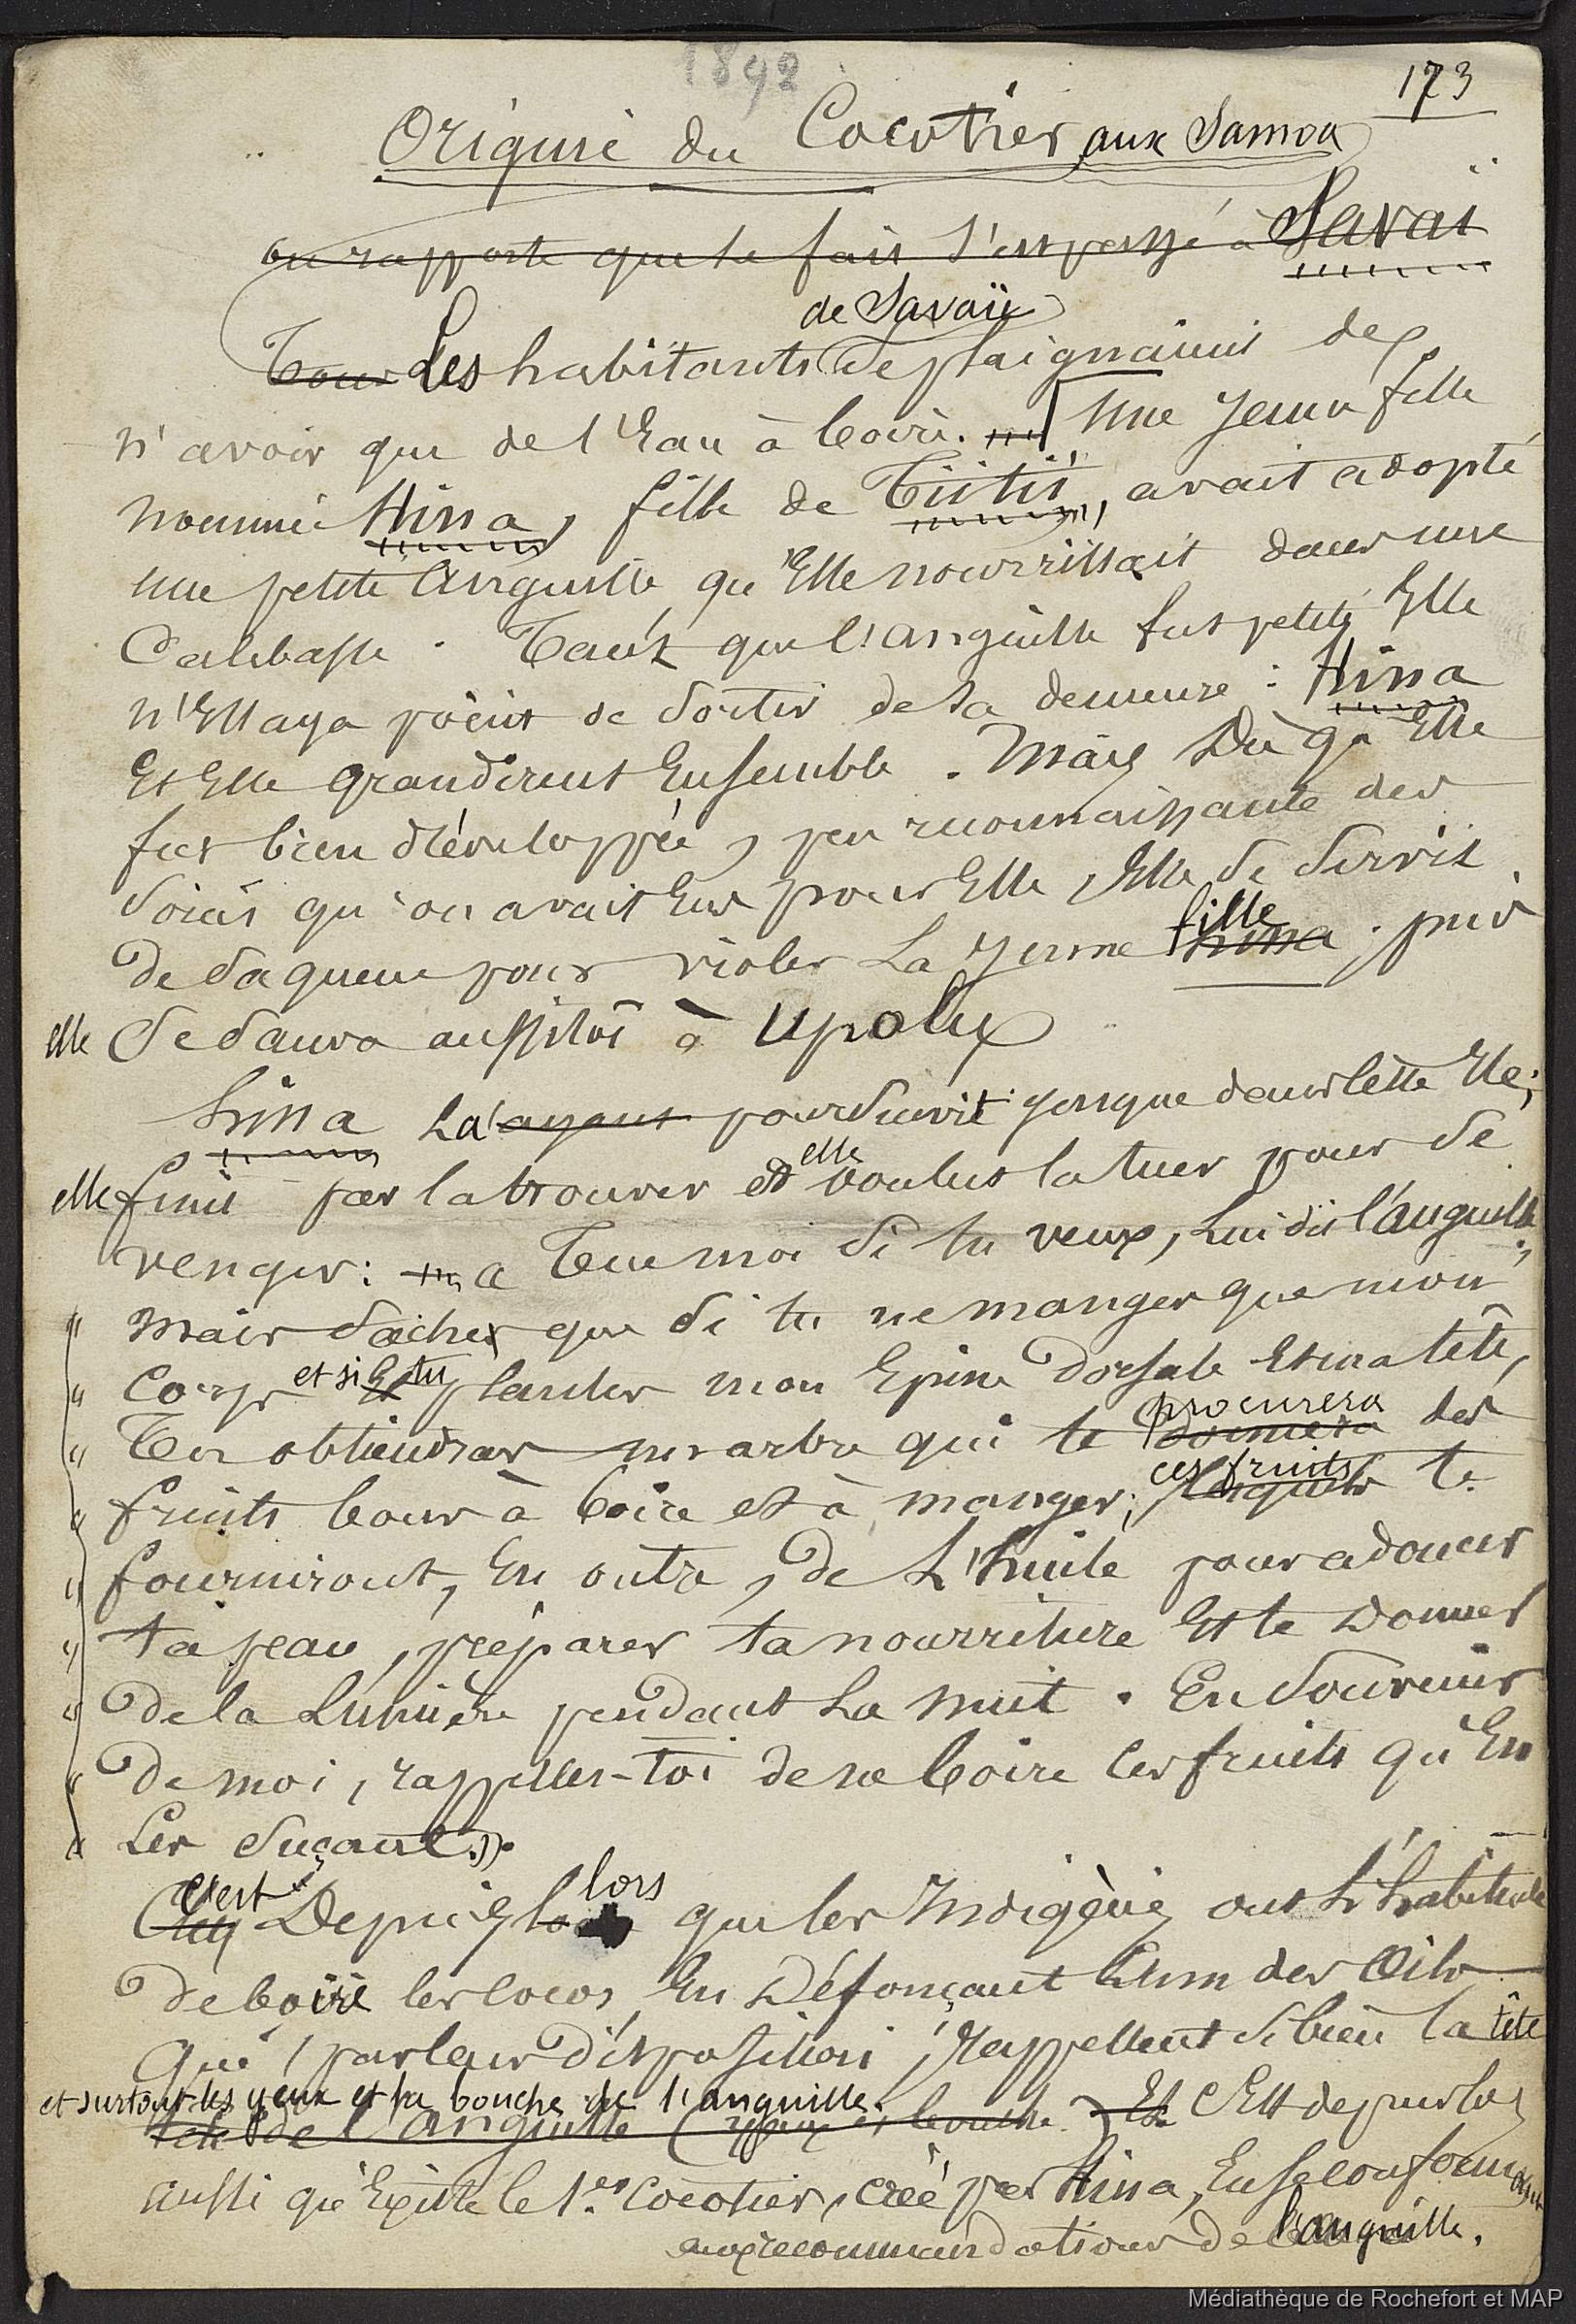 1892
173
Origine du Cocotier aux Samoa
on rapporte que le fait s'est passé à Savaï
de Savaïe
Tous Les habitants se plaignaient de
n'avoir que de l'Eau à boire. Une jeune fille
nommée Hina, fille de Tiitii, avait adopté
une petite anguille qu'Elle nourrissait dans une
Calebasse. Tant que l'anguille fut petite Elle
n'Essaya point de sortir de sa demeure : Hina
Et Elle grandirent Ensemble. Mais Dès qu'Elle
fut bien développée, peu reconnaissante des
soins qu'on avait Eus pour Elle, Elle se servit
fille
de sa queue pour violer La jeune Hina ; puis
elle se sauva aussitôt à Upolu
Hina La ayant poursuivit jusque dans cette Ile ;
elle
elle finit par la trouver et voulut la tuer pour se
venger : « Tue moi si tu veux, Lui dit l'anguille,
" mais saches que si tu ne manges que mon
" Corps et si Et tu plantes mon Epine dorsale Et ma tête,
procurera
" Tu obtiendras un arbre qui te donnera des
ces fruits
" fruits bons à boire et à manger ; lesquels te
" fourniront, En outre, de L'huile pour adoucir
" ta peau, préparer ta nourriture Et te Donner
" de la Lumière pendant La nuit. En souvenir
" de moi, rappelles-toi de ne boire les fruits qu'En
" Les suçant ».
C'est lors
Depuis que les Indigènes ont L'habitude
de boire les cocos En Défonçant L'un des Œils
qui, par leur disposition, rappellent si bien la tête
et surtout les yeux et la bouche de l'anguille.
tête de l'anguille (yeux et bouche) Et C'Est depuis lors
aussi qu'Existe le 1er Cocotier, créé par Hina, En se conformant
aux recommandations de l'anguille.
Médiathèque de Rochefort et MAP